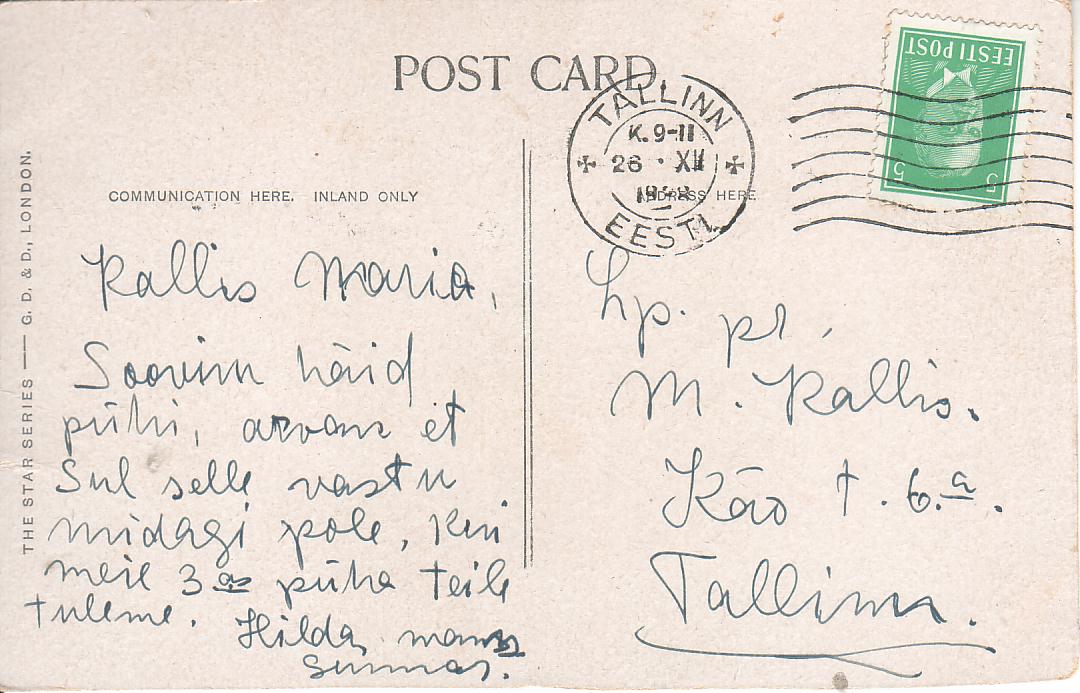 POST CARD
TALLINN
K. 9-11
26 · XII
EESTI
EESTI POST
5 5
COMMUNICATION HERE. INLAND ONLY
ADDRESS HERE
THE STAR SERIES — G. D. & D., LONDON.
Kallis Maria,
Soovin häid
pühi, arvan et
Sul selle vastu
midagi pole, kui
meie 3 as püha teile
tuleme. Hilda
Lp. pr.
M. Kallis.
Käo t. 6.a.
Tallinn.